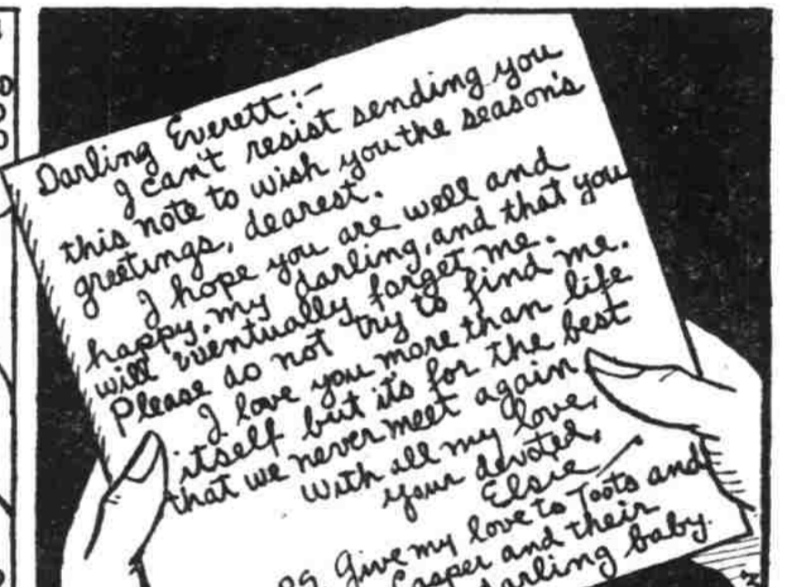 Darling Everett:-
I can't resist sending you
this note to wish you the season's
greetings, dearest.
I hope you are well and
happy, my darling, and that you
will eventually forget me.
Please do not try to find me.
I love you more than life
itself but it's for the best
that we never meet again.
With all my love,
your devoted,
Elsie
PS Give my love to Toots and
Casper and their
darling baby.